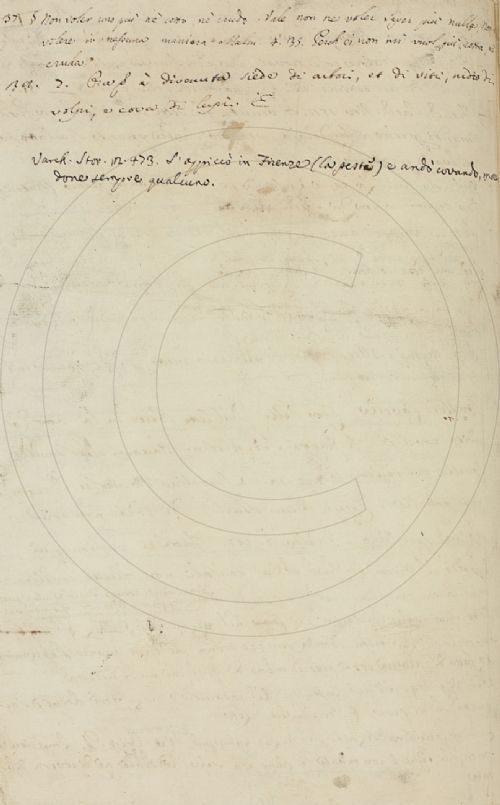 37. § Non voler uno più nè cotto nè crudo. Vale non ne voler saper più nulla, non
volere in nessuna maniera. Malm. 4. 35. Perch' ei non mi vuol più cotta nè
cruda.
3. è divenuta siede di arbori, et di viti, nido di
volpi, e cova di lupi. E
Varch. Stor. 12. 473. S'appiccò in Firenze (la peste) e andò covando,
done sempre qualcuno.